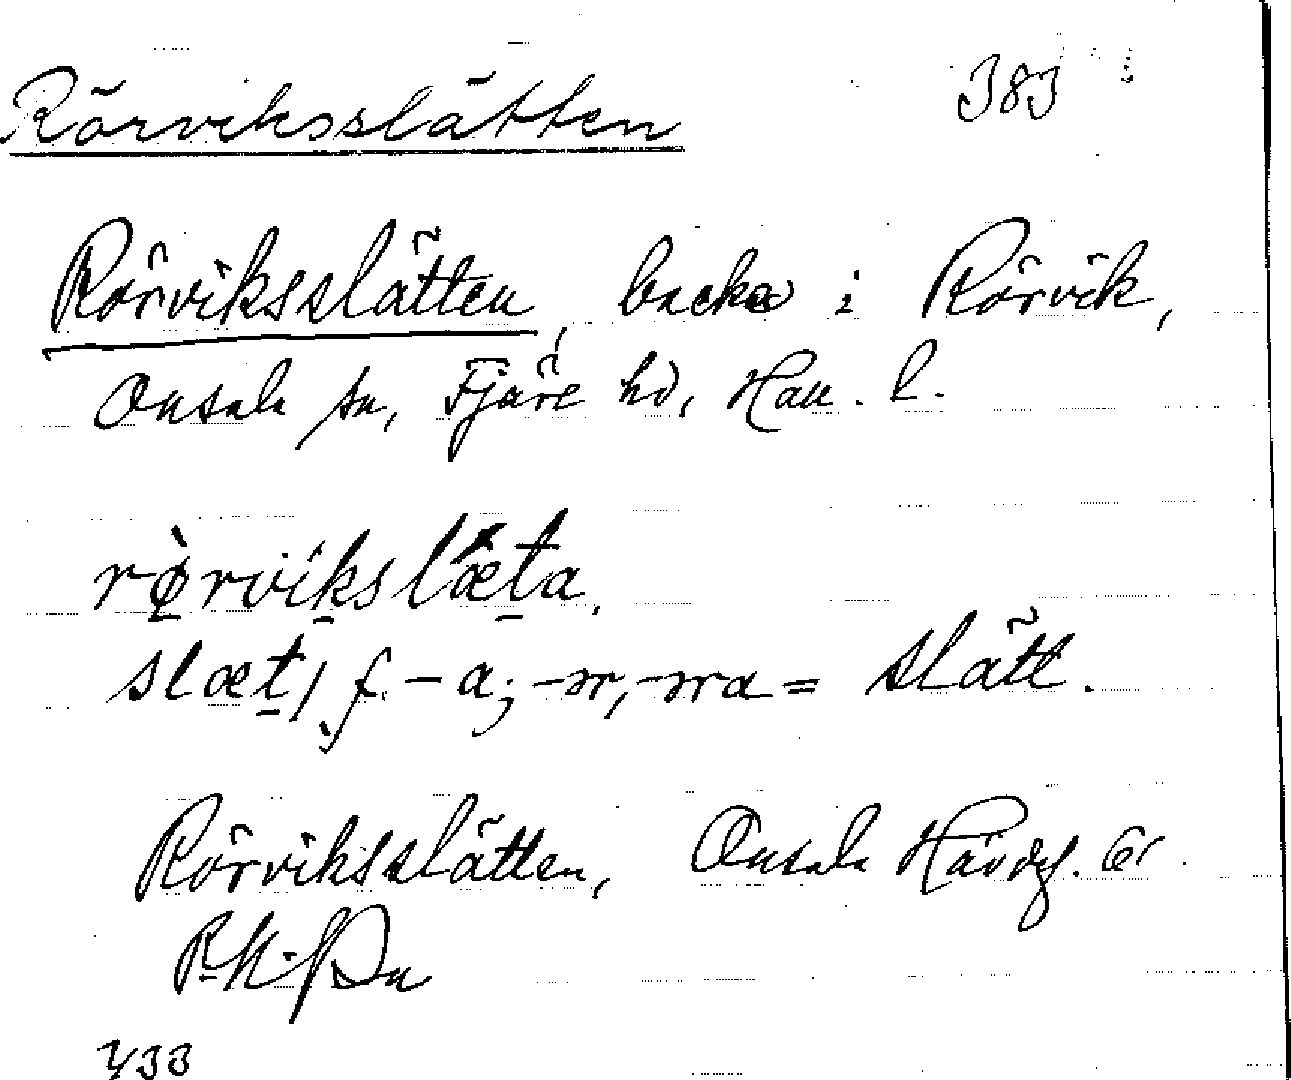 Rörviksslätten 383
Rörviksslätten, backe i Rörvik,
Onsala sn, Fjäre hd, Hall. l.
rø̀rvikslæta.
slæt, f. -a; -ır, -ıra = slätt.
Rörviksslätten, Onsala Hävdef.
433